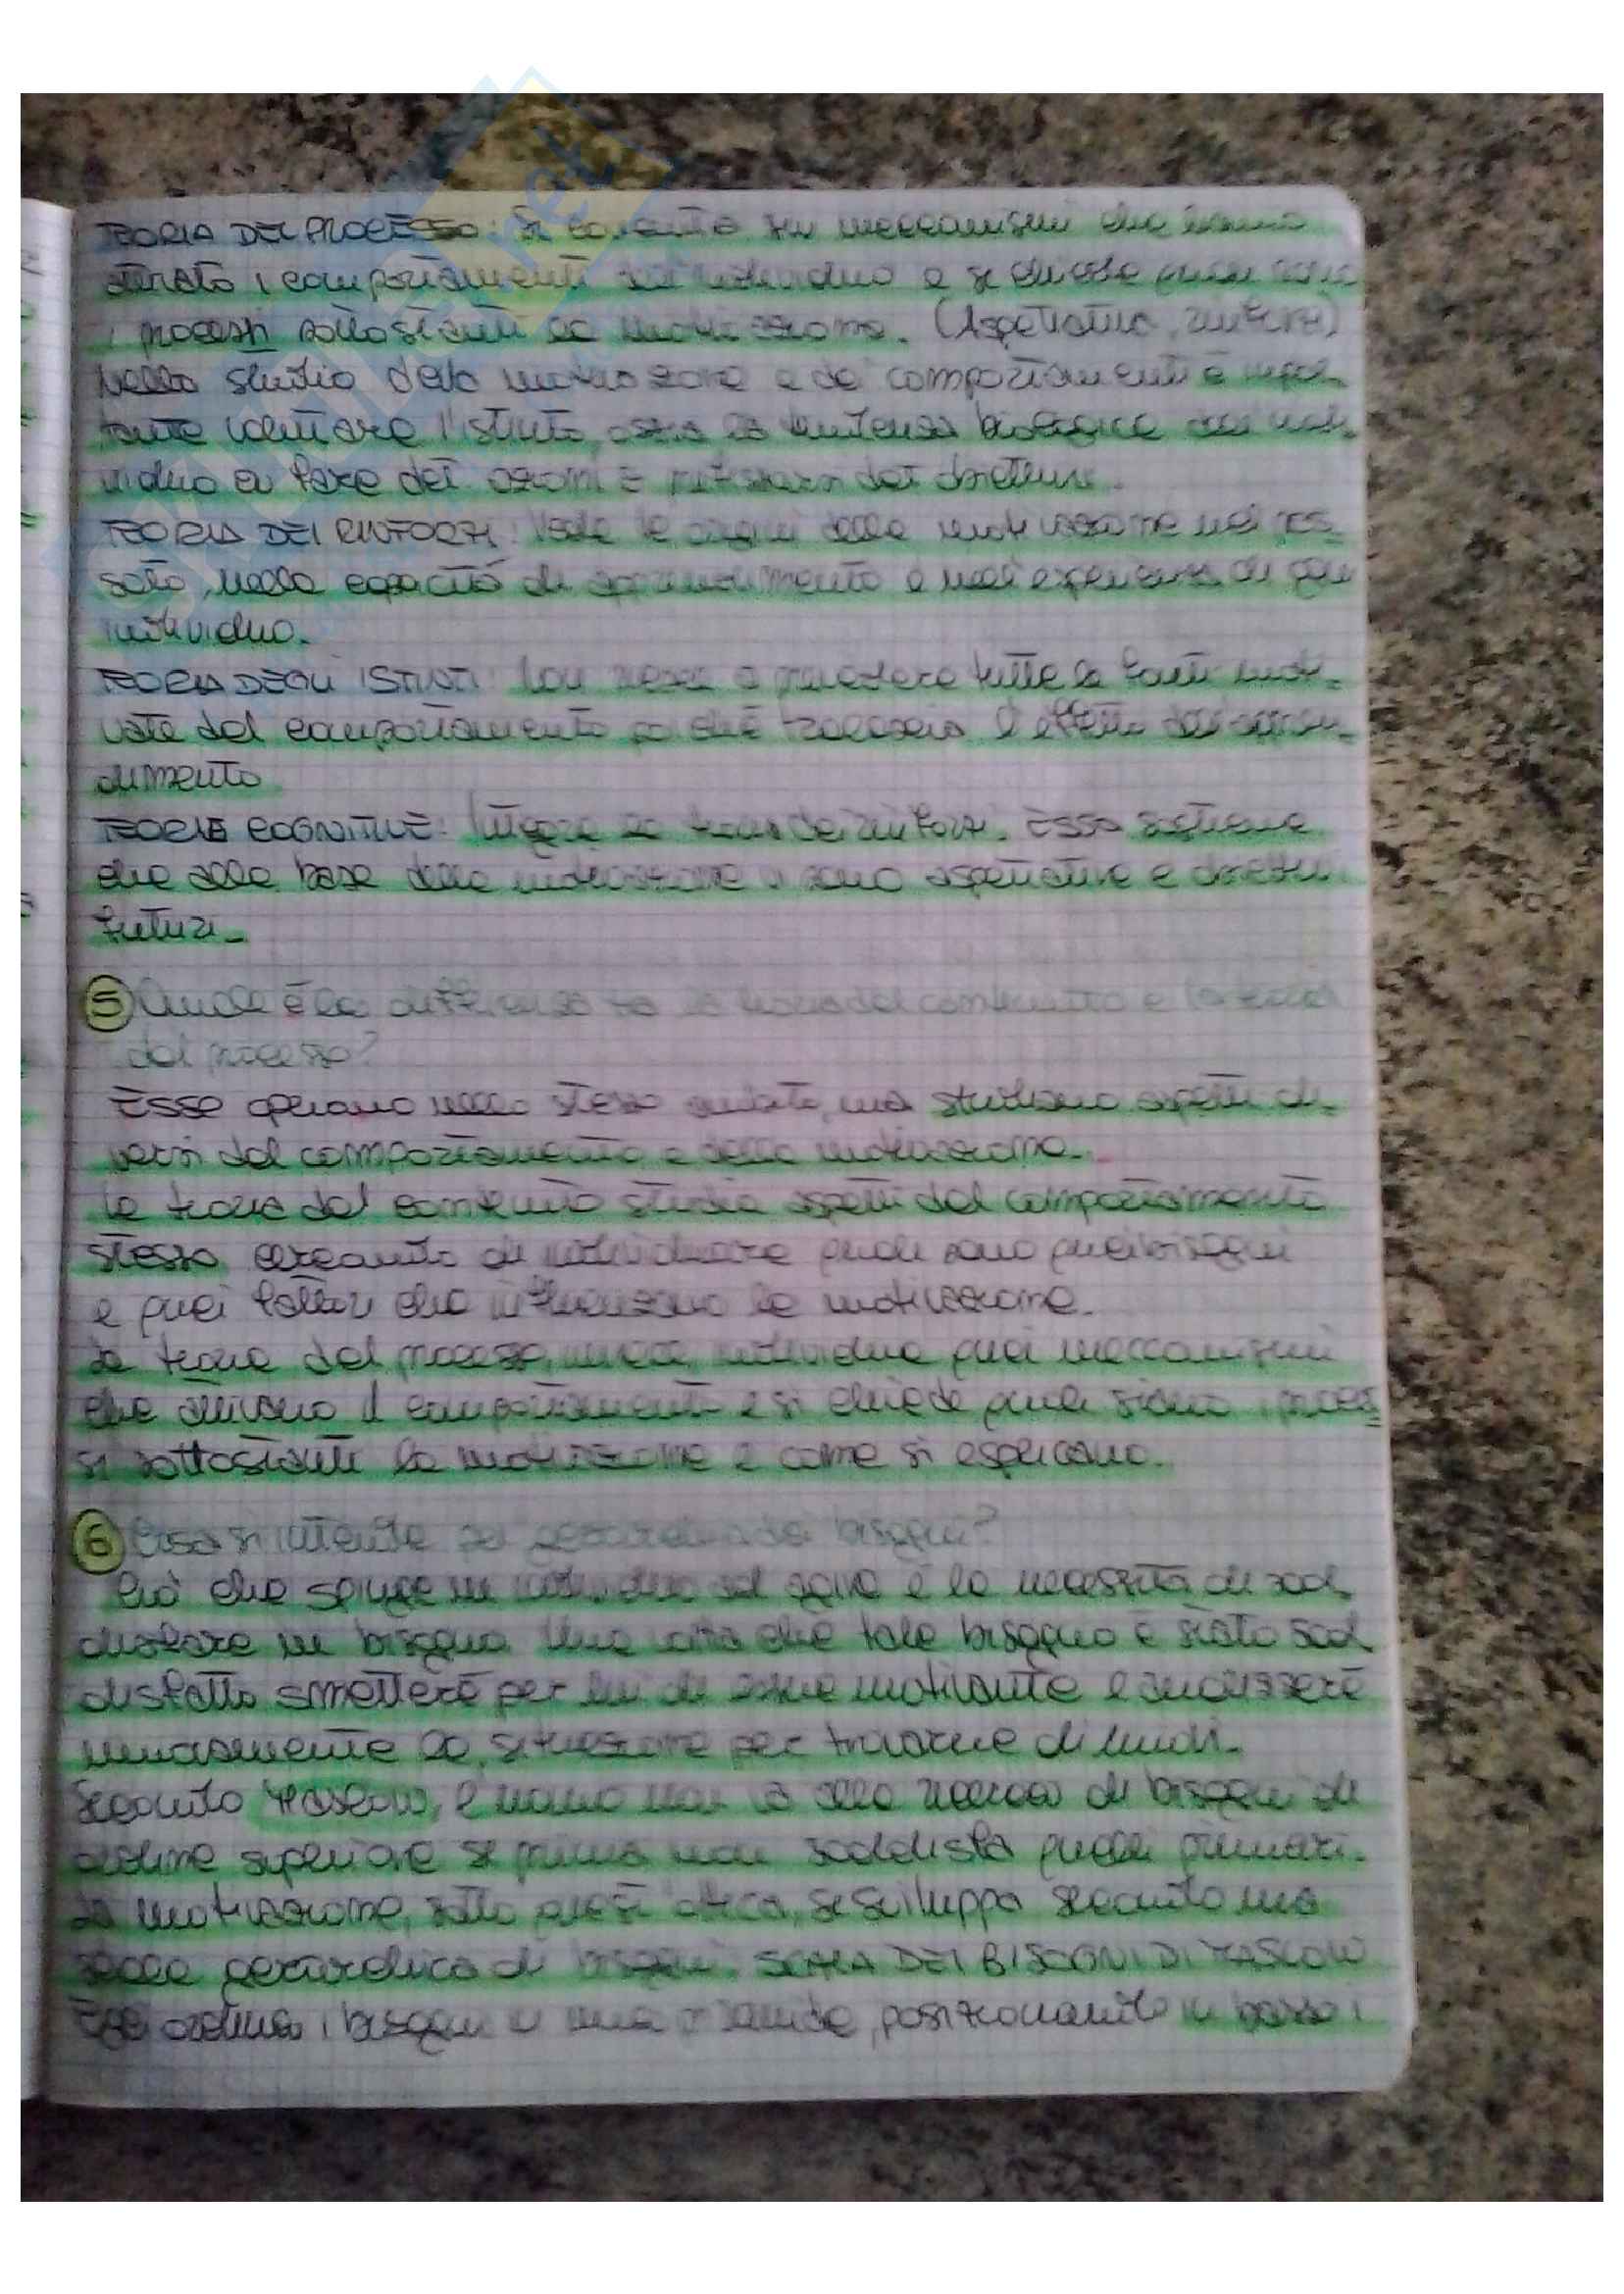 TEORIA DEL PROCESSO: si concentra su meccanismi che hanno
attivato i comportamenti dell'individuo e si chiede quali sono
i processi sottostanti la motivazione. (Aspettativa, rinforzi)
Nello studio della motivazione e dei comportamenti è impor-
tante valutare l'istinto, ossia la tendenza biologica dell'indi-
viduo a fare dei
TEORIA DEI RINFORZI: vede le origini della motivazione nel pas-
sato, nella capacità di apprendimento e nell'esperienza di quel
individuo.
TEORIA DEGLI ISTINTI: Non riesce a prevedere tutte le fonti moti-
vate del comportamento poiché tralascia l'effetto dell'appren-
dimento
TEORIE COGNITIVE: Integra la teoria dei rinforzi. Essa sostiene
che alla base della motivazione vi sono aspettative e obiettivi
futuri.
5 Quale è la differenza tra la teoria del contenuto e la teoria
del processo?
Esse operano nello stesso ambito, ma studiano aspetti di-
versi del comportamento e della motivazione.
La teoria del contenuto studia aspetti del comportamento
stesso cercando di individuare quali sono quei bisogni
e quei fattori che influenzano la motivazione.
La teoria del processo, invece, individua quei meccanismi
che attivano il comportamento e si chiede quali siano i proces
si sottostanti la motivazione e come si esplicano.
6 Cosa si intende per gerarchia dei bisogni?
Ciò che spinge un individuo ad agire è la necessità di sod
disfare un bisogno. Una volta che tale bisogno è stato sod
disfatto smetterà per lui di essere motivante e analizzerà
nuovamente la situazione per trovarne di nuovi.
Secondo Maslow, l'uomo non va alla ricerca di bisogni di
ordine superiore se prima non soddisfa quelli primari.
La motivazione, sotto quest'ottica, si sviluppa secondo una
scala gerarchica di bisogni. SCALA DEI BISOGNI DI MASLOW
Egli ordina i bisogni in una piramide, posizionando in basso i